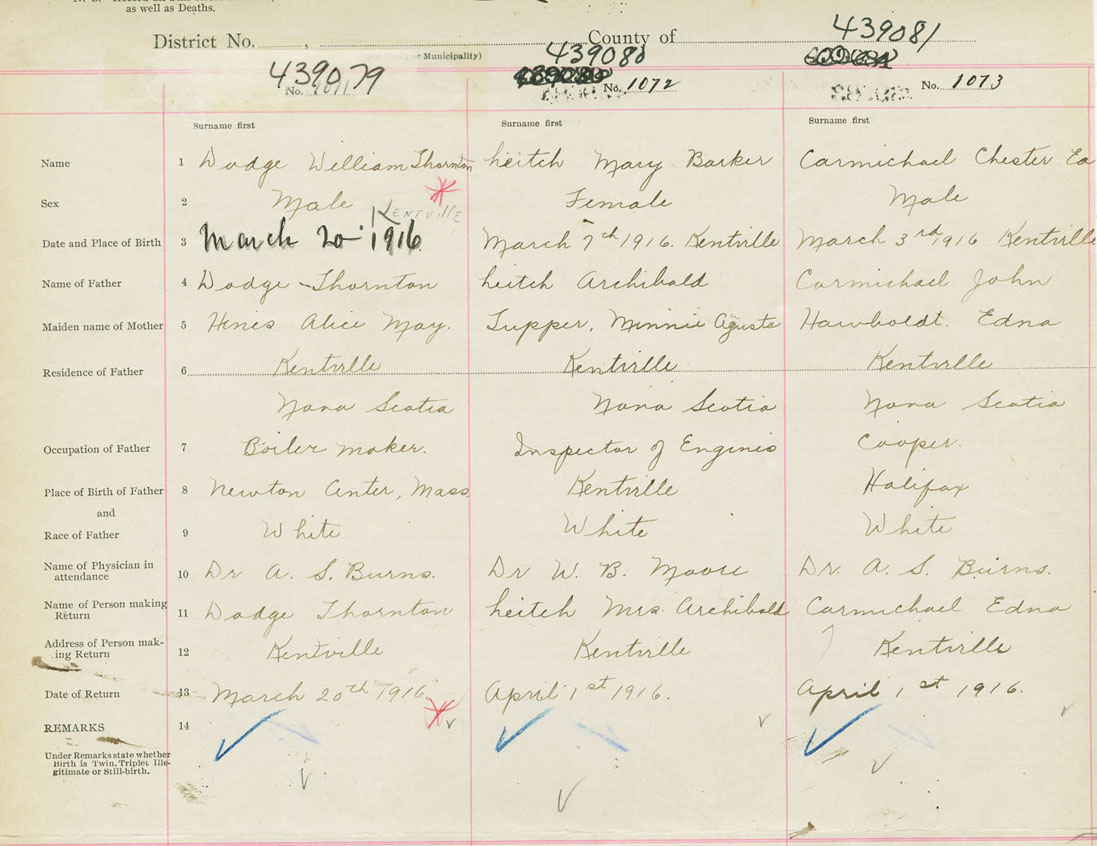 as well as Deaths.
District No. , County of 439081
or Municipality) 439080
439079
No. No. 1072 No. 1073
Surname first Surname first Surname first
Name 1 Dodge William Thornton Leitch Mary Barker Carmichael Chester Ea
Sex 2 Male Female Male
Kentville
Date and Place of Birth 3 March 20 1916 March 7th 1916. Kentville March 3rd 1916 Kentville
Name of Father 4 Dodge Thornton Leitch Archibald Carmichael John
Maiden name of Mother 5 Hines Alice May. Tupper, Minnie Agusta Hawboldt. Edna
Residence of Father 6 Kentville Kentville Kentville
Nova Scotia Nova Scotia Nova Scotia
Occupation of Father 7 Boiler maker. Inspector of Engines Cooper.
Place of Birth of Father 8 Newton Center, Mass Kentville Halifax
and
Race of Father 9 White White White
Name of Physician in
attendance 10 Dr A. S. Burns. Dr W. B. Moore Dr. A. S. Burns.
Name of Person making
Return 11 Dodge Thornton Leitch Mrs Archibald Carmichael Edna
Address of Person mak-
ing Return 12 Kentville Kentville Kentville
Date of Return 13 March 20th 1916 April 1st 1916. April 1st 1916.
REMARKS 14
Under Remarks state whether
Birth is Twin, Triplet, Ille-
gitimate or Still-birth.